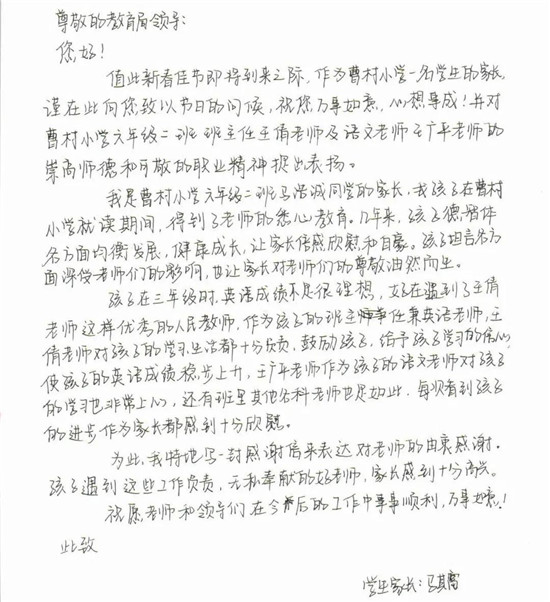 尊敬的教育局领导:
您好!
值此新春佳节即将到来之际,作为曹村小学一名学生的家长,
谨在此向您致以节日的问候,祝您万事如意,心想事成!并对
曹村小学六年级二班班主任王倩老师及语文老师王广平老师的
崇高师德和可敬的职业精神提出表扬。
我是曹村小学六年级二班马浩诚同学的家长,我孩子在曹村
小学就读期间,得到了老师的悉心教育。几年来,孩子德智体
各方面均衡发展,健康成长,让家长倍感欣慰和自豪。孩子坦言各方
面深受老师们的影响,也让家长对老师们的尊敬油然而生。
孩子在三年级时,英语成绩不是很理想,好在遇到了王倩
老师这样优秀的人民教师,作为孩子的班主任兼英语老师,王
倩老师对孩子的学习生活都十分负责,鼓励孩子,给予孩子学习的信心
使孩子的英语成绩稳步上升,王广平老师作为孩子的语文老师对孩子
的学习也非常上心,还有班里其他各科老师也是如此,每次看到孩子
的进步作为家长都感到十分欣慰。
为此,我特地写一封感谢信来表达对老师的由衷感谢。
孩子遇到这些工作负责,无私奉献的好老师,家长感到十分高兴。
祝愿老师和领导们在今后的工作中事事顺利,万事如意!
此致
学生家长:马其